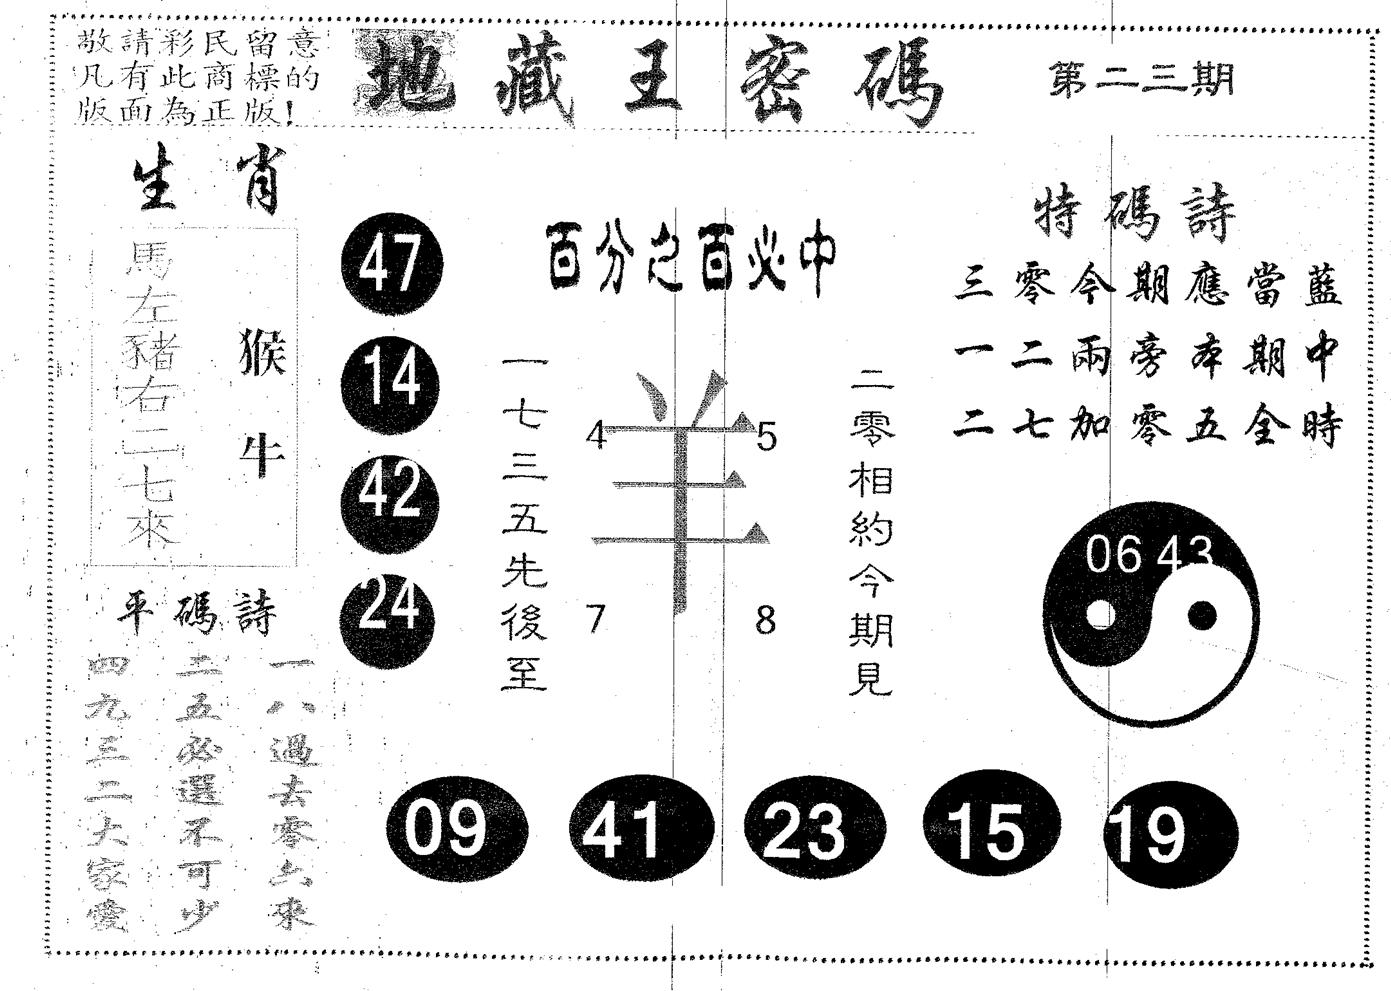 敬請彩民留意
凡有此商標的
版面為正版!
地藏王密碼
第二三期
生肖
馬左豬右二七來
猴牛
47
14
42
24
百分之百必中
一七三五先後至
羊
4
5
7
8
二零相約今期見
特碼詩
三零今期應當藍
一二兩旁本期中
二七加零五全時
06 43
平碼詩
一八過去零六來
五必選不可少
四九三二大家愛
09
41
23
15
19